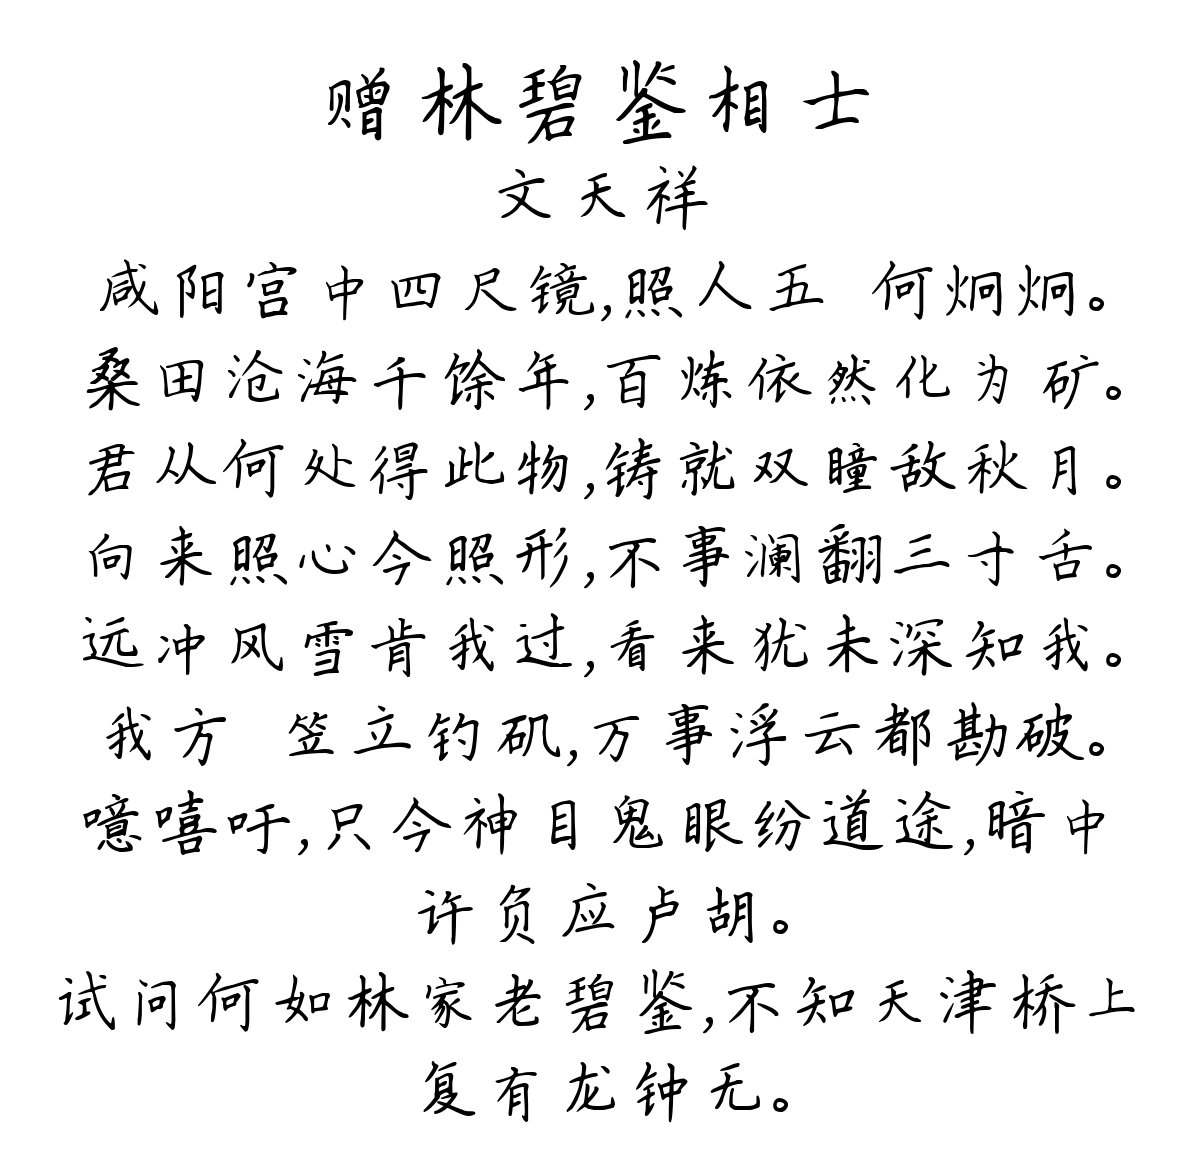 赠林碧鉴相士
文天祥
咸阳宫中四尺镜,照人五 何炯炯。
桑田沧海千馀年,百炼依然化为矿。
君从何处得此物,铸就双瞳敌秋月。
向来照心今照形,不事澜翻三寸舌。
远冲风雪肯我过,看来犹未深知我。
我方 笠立钓矶,万事浮云都勘破。
噫嘻吁,只今神目鬼眼纷道途,暗中
许负应卢胡。
试问何如林家老碧鉴,不知天津桥上
复有龙钟无。